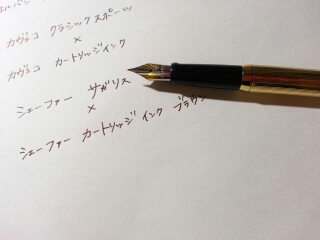 カヴェコ クラシックスポーツ
×
カヴェコ カートリッジインク
シェーファー サガリス
×
シェーファー カートリッジ インク ブラウン